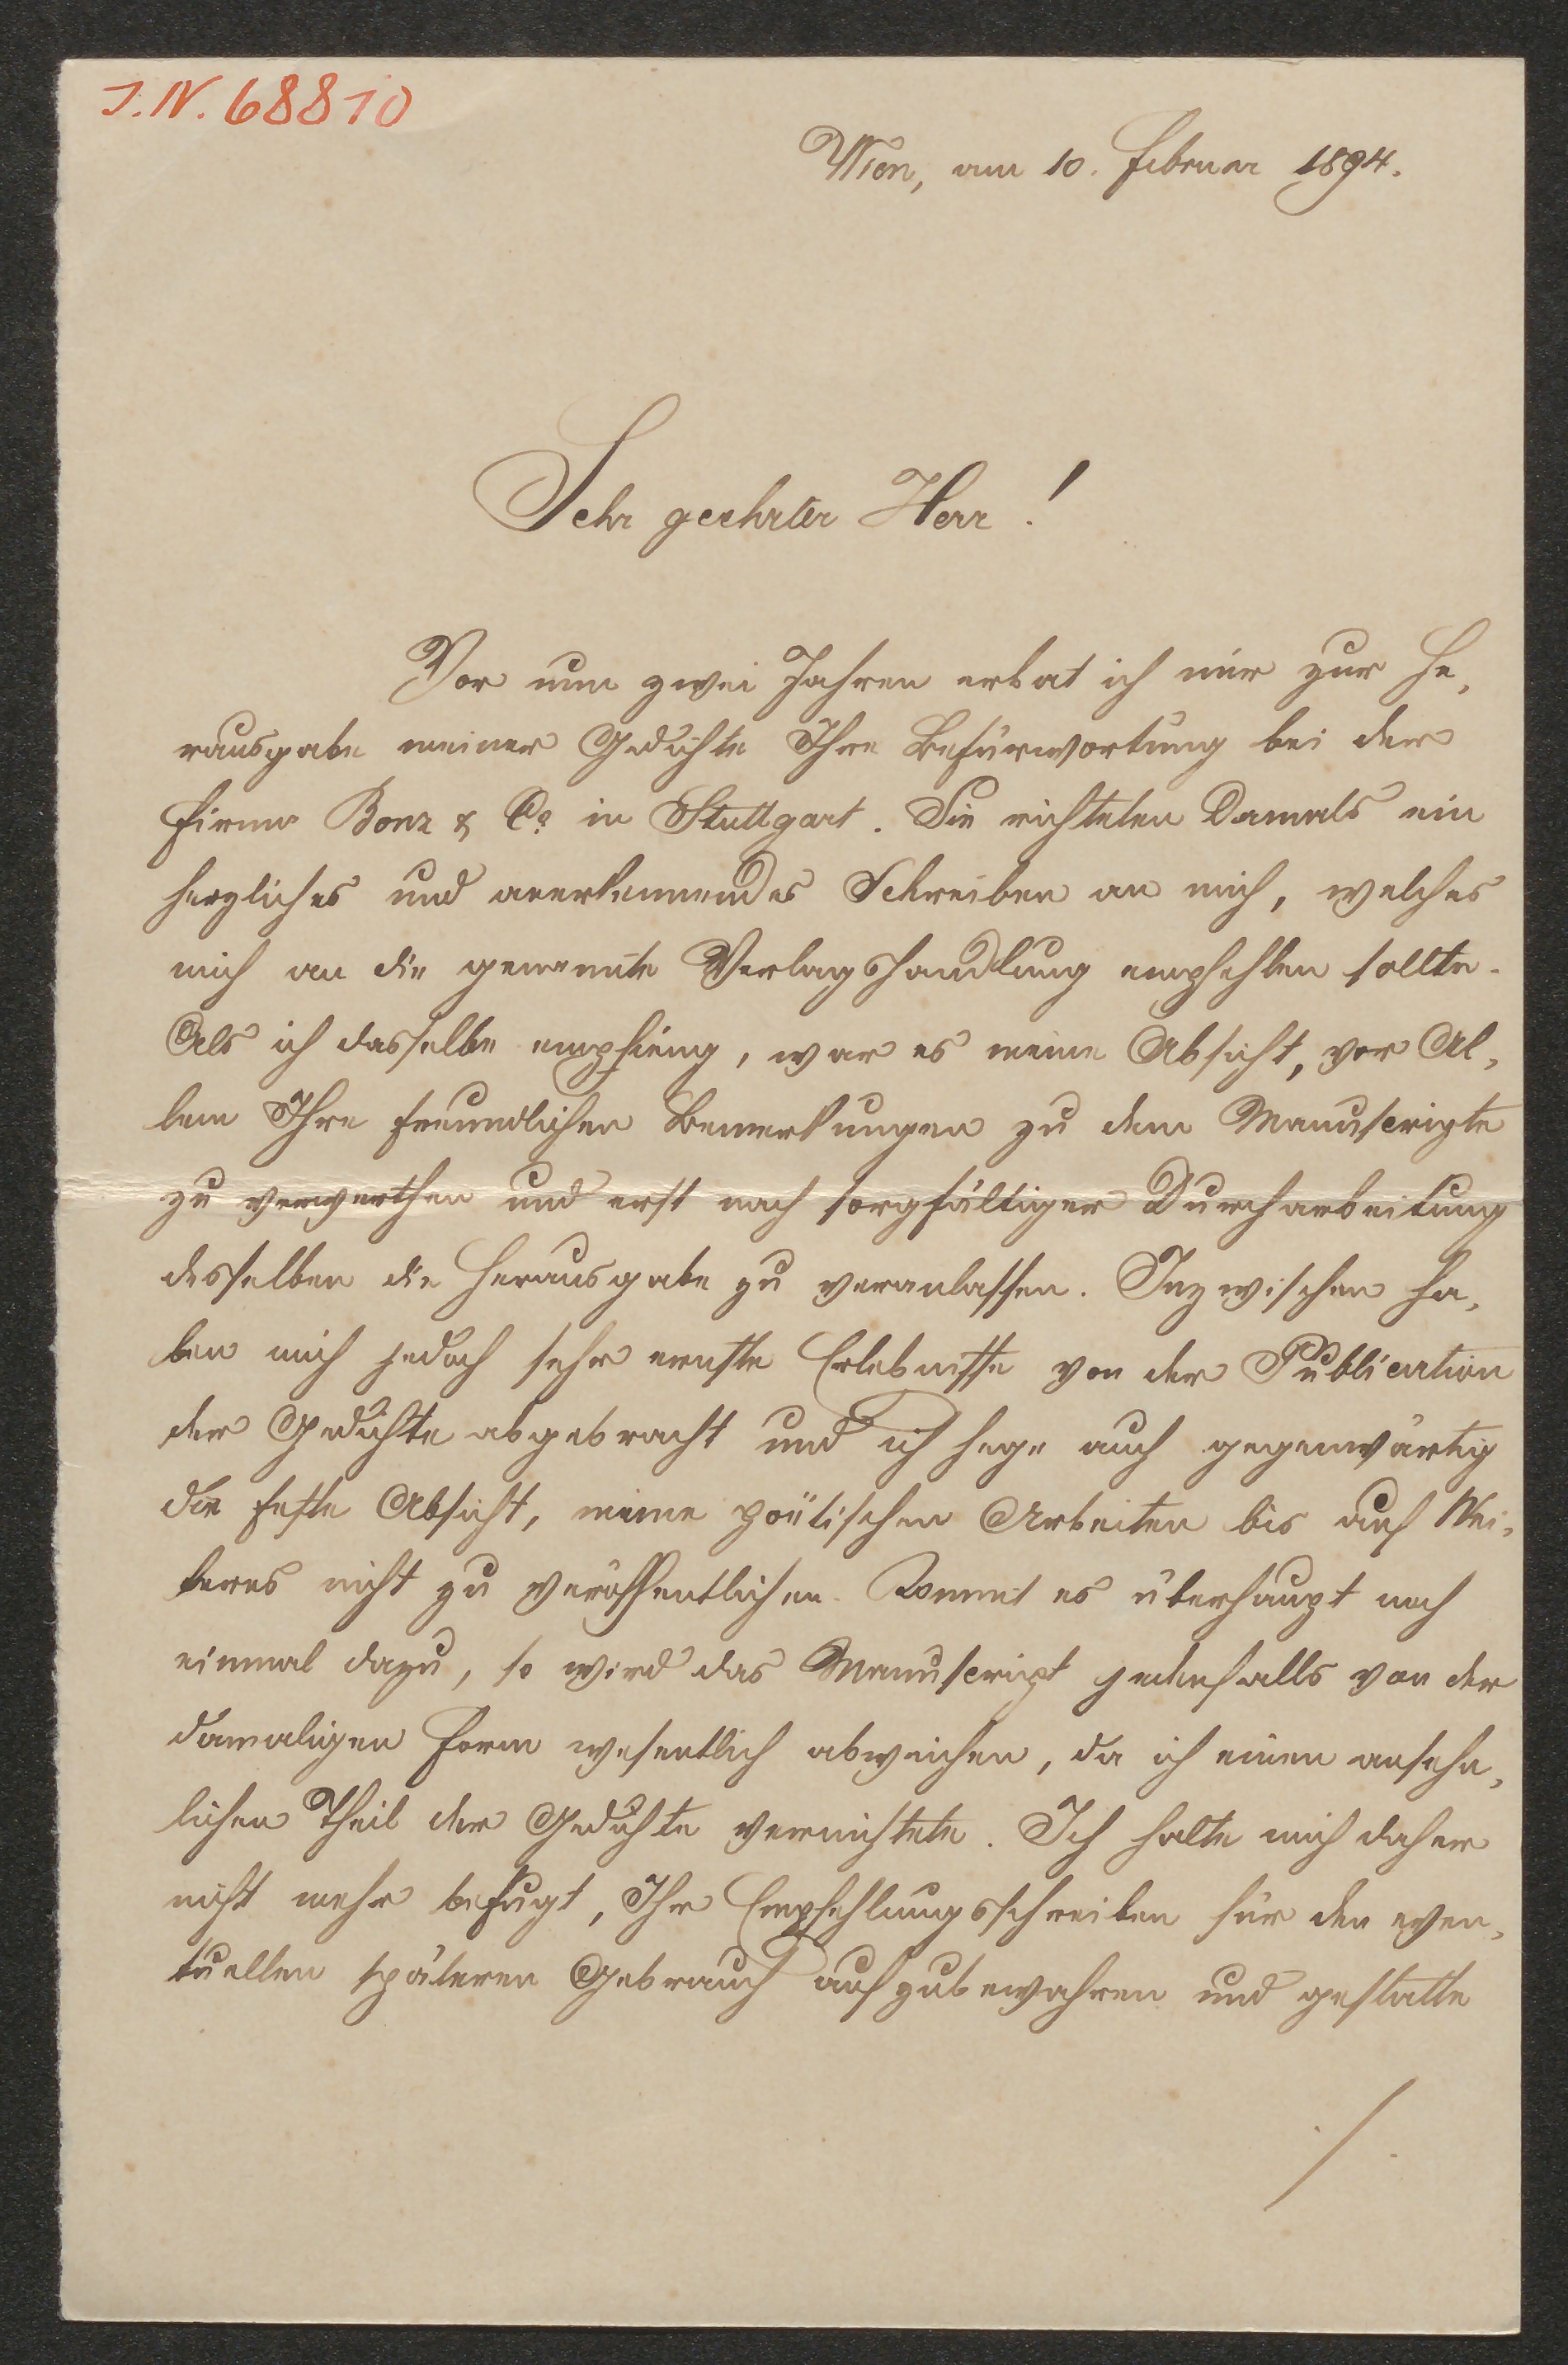 J.N. 68810
Wien, am 10. Februar 1894.
Sehr geehrter Herr!
Vor nun zwei Jahren erbat ich mir zur He,
rausgabe meiner Gedichte Ihre Befürwortung bei der
Firma Bonz & Co in Stuttgart. Sie richteten damals ein
herzliches und anerkennendes Schreiben an mich, welches
mich an die genannte Verlagshandlung empfehlen sollte.
Als ich dasselbe empfieng, war es meine Absicht, vor Al,
lem Ihre freundlichen Bemerkungen zu dem Manuscripte
zu verwerthen und erst nach sorgfältiger Durcharbeitung
desselben die Herausgabe zu veranlassen. Inzwischen ha,
ben mich jedoch sehr ernste Erlebnisse von der Publication
der Gedichte abgebracht und ich hege auch gegenwärtig
die feste Absicht, meine poëtischen Arbeiten bis auf Wei,
teres nicht zu veröffentlichen. Kommt es überhaupt noch
einmal dazu, so wird das Manuscript jedenfalls von der
damaligen Form wesentlich abweichen, da ich einen ansehn,
lichen Theil der Gedichte vernichtete. Ich halte mich daher
nicht mehr befugt, Ihr Empfehlungsschreiben für den even,
tuellen späteren Gebrauch aufzubewahren und gestatte
./.